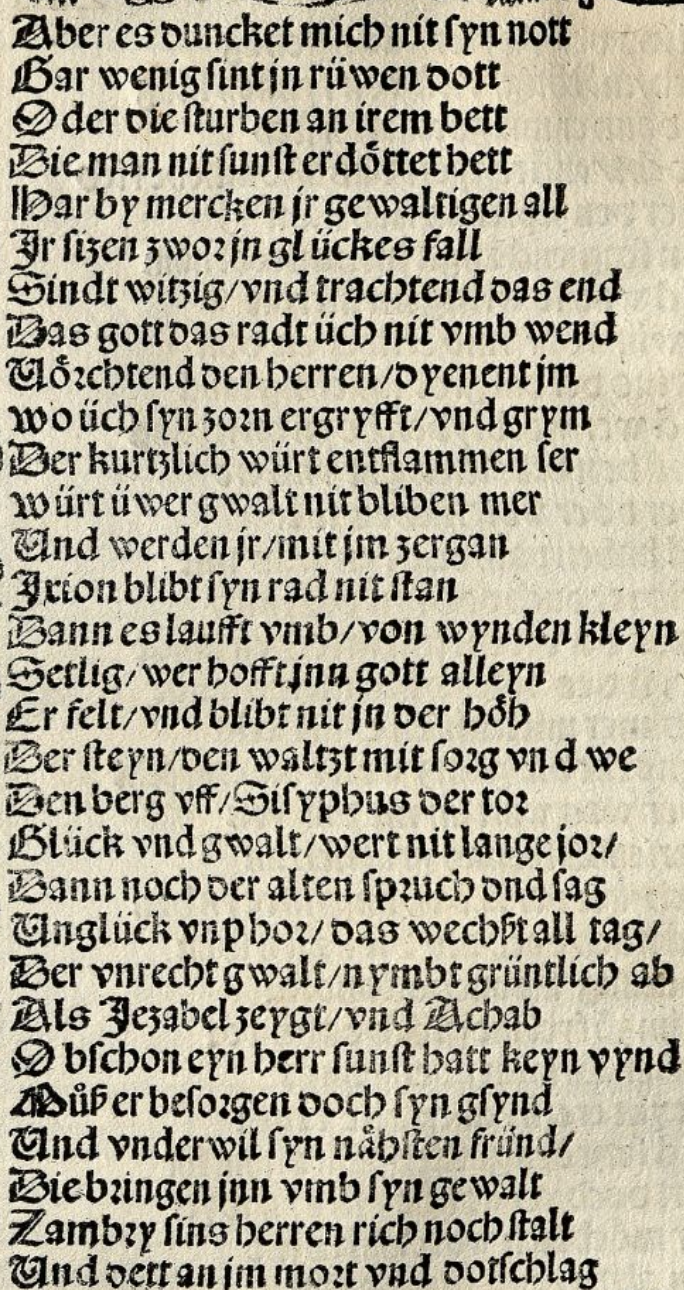 Aber es duncket mich nit syn nott
Gar wenig sint jn rüwen dott
Oder die sturben an irem bett
Die man nit sunst erdöttet hett
Har by mercken jr gewaltigen all
Ir sizen zwor jn glückes fall
Sindt witzig/vnd trachtend das end
Das gott das radt üch nit vmb wend
Vörchtend den herren/dyenent jm
wo üch syn zorn ergryfft/vnd grym
Der kurtzlich würt entflammen ser
würt üwer gwalt nit bliben mer
Und werden jr/mit jm zergan
Ixion blibt syn rad nit stan
Dann es laufft vmb/von wynden kleyn
Setlig/wer hofft jnn gott alleyn
Er felt/vnd blibt nit jn der höh
Der steyn/den waltzt mit sorg vnd we
Den berg vff/Sisyphus der tor
Glück vnd gwalt/wert nit lange jor/
Dann noch der alten spruch vnd sag
Unglück vnp hor/das wechßt all tag/
Der vnrecht gwalt/nymbt grüntlich ab
Als Jezabel zeygt/vnd Achab
Obschon eyn herr sunst hatt keyn vynd
Můß er besorgen doch syn gsynd
Und vnderwil syn nåhsten fründ/
Die bringen jnn vmb syn gewalt
Zambry sins herren rich noch stalt
Und dett an jm mort vnd dotschlag